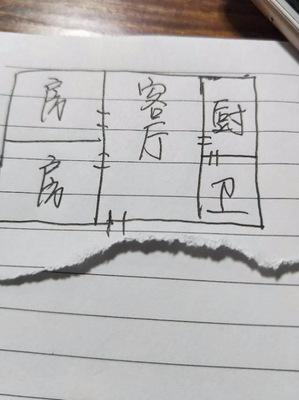 房
房
客厅
厨
卫